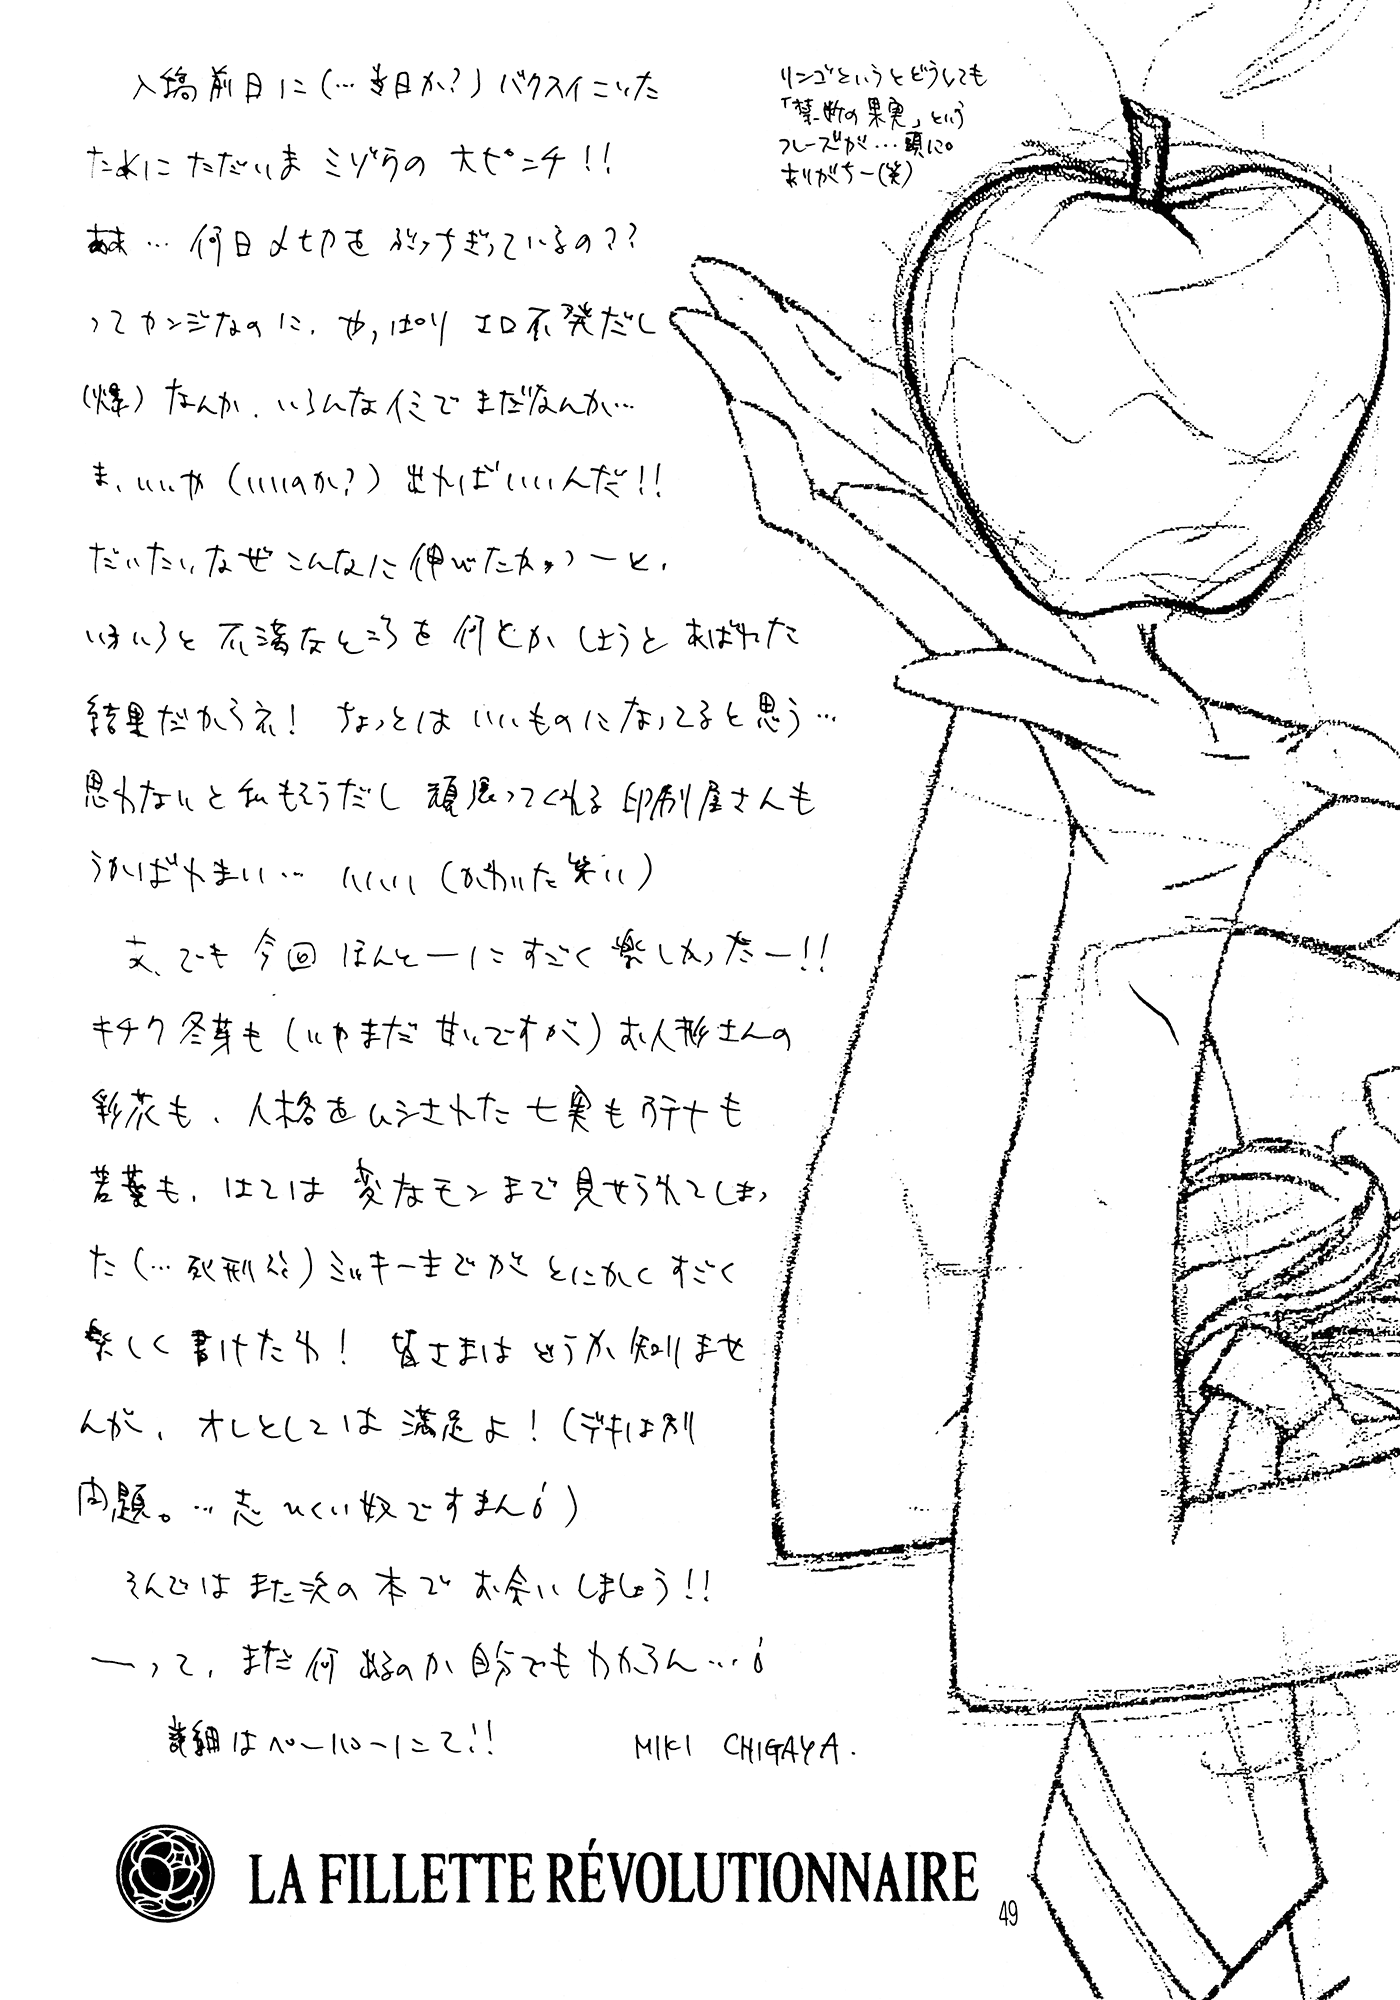 入稿前日に(…当日か?)バクスイこいた
ために ただいま ミゾウの 大ピンチ!!
あま… 何日〆切を ぶっちぎっているの??
ってカンジなのに、やっぱり エロ不発だし
(爆) なんか、いろんなイミで まだなんか…
ま、いいや (いいのか?) 出ればいいんだ!!
だいたいなぜ こんなに伸びたかっつーと、
いろいろと 不満なところを 何とか しようと あばれた
結果だからネ! ちょっとは いいものになってると思う…
思わないと 私もそうだし 頑張ってくれる 印刷屋さんも
うかばれまい… いいい (かわいた笑い)
ま、でも 今回 ほんとーに すごく 楽しかったー!!
キチク冬芽も (いやまだ甘いですが) お人形さんの
彩花も、人格をムシされた 七実もウテナも
若葉も、はては 変なモンまで 見せられてしまっ
た (…死刑台) ミッキーまでが とにかく すごく
楽しく 書けたわ! 皆さまは どうか知りませ
んが、オレとしては 満足よ! (デキは別
問題。… 志ひくい奴ですまん)
そんでは また次の 本で お会いしましょう!!
ーって、まだ何出るのか 自分でもわからん…
詳細はペーパーにて!!
MIKI CHIGAYA.
リンゴというとどうしても
「禁断の果実」という
フレーズが…頭に。
ありがちー(笑)
LA FILLETTE RÉVOLUTIONNAIRE
49